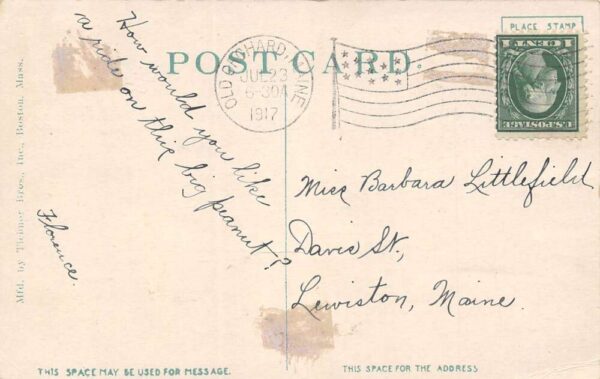 PLACE STAMP
POST CARD.
OLD ORCHARD, MAINE
JUL 23
6-30 A
1917
1 CENT 1
U.S. POSTAGE
How would you like
a ride on this big peanut?
Florence.
Miss Barbara Littlefield
Davis St,
Lewiston, Maine.
Mfd. by Tichnor Bros., Inc., Boston, Mass.
THIS SPACE MAY BE USED FOR MESSAGE.
THIS SPACE FOR THE ADDRESS